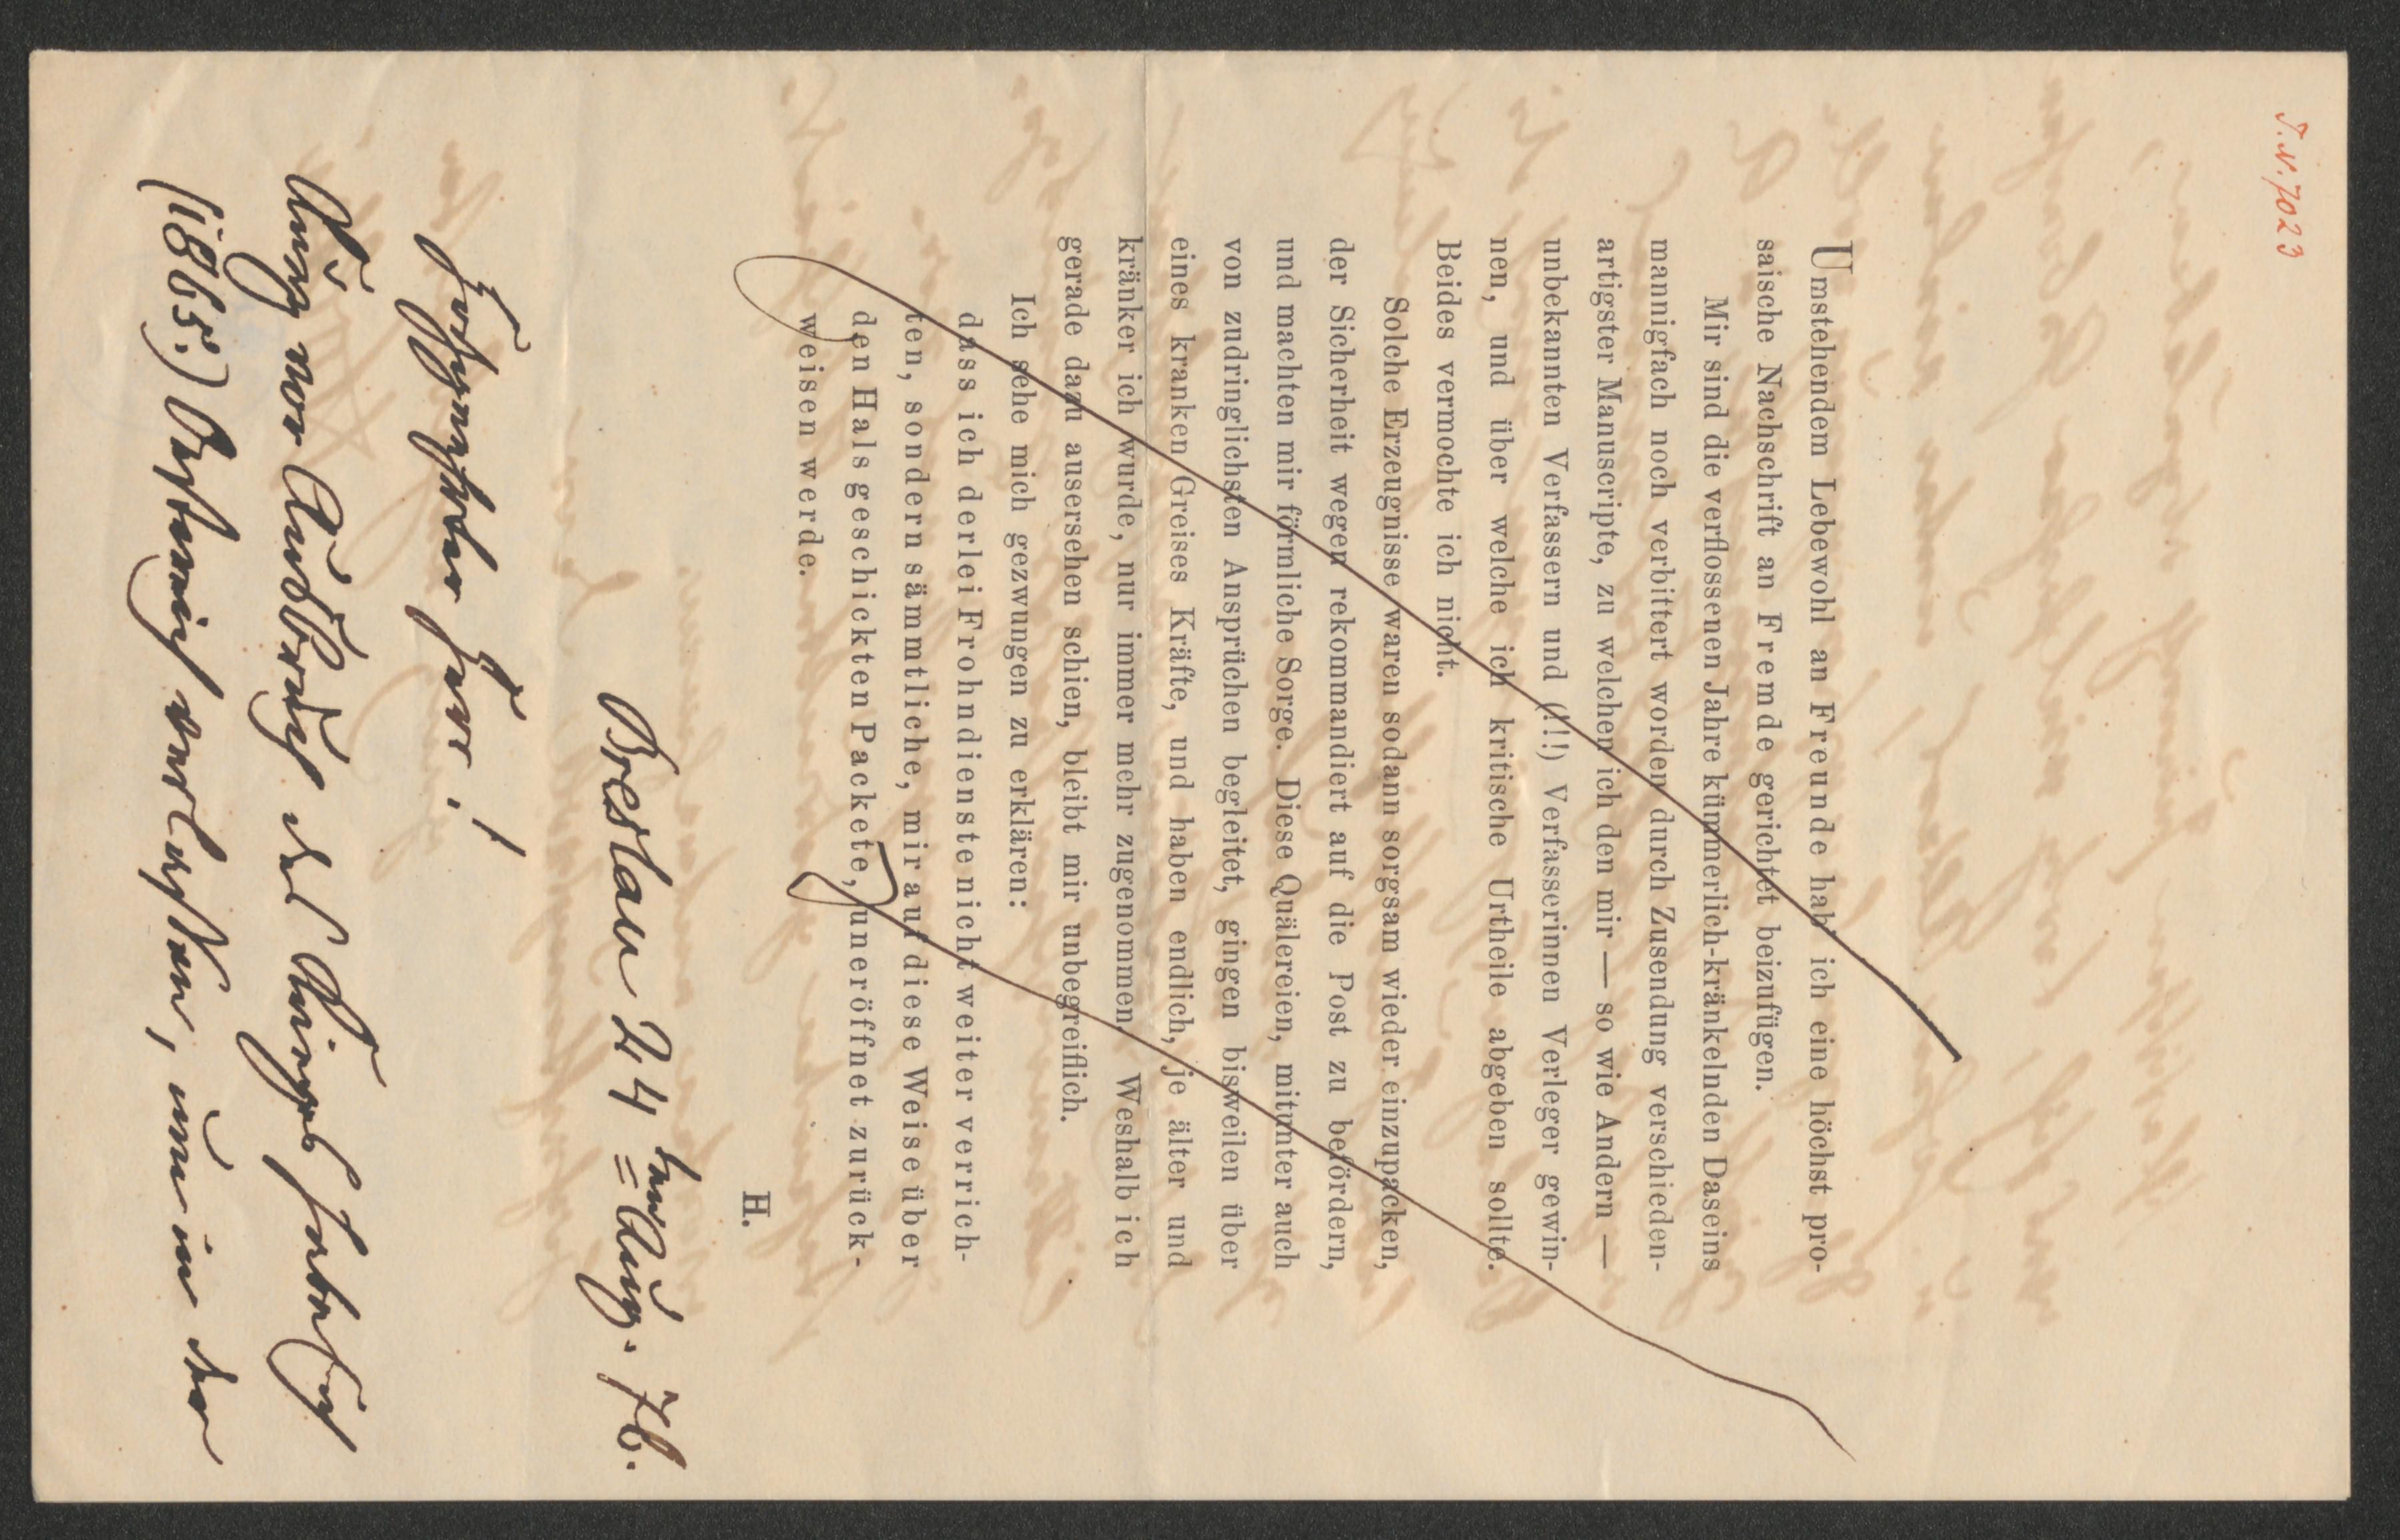 I. N. 7023
Umstehendem Lebewohl an Freunde hab' ich eine höchst pro-
saische Nachschrift an Fremde gerichtet beizufügen.
Mir sind die verflossenen Jahre kümmerlich-kränkelnden Daseins
mannigfach noch verbittert worden durch Zusendung verschieden-
artigster Manuscripte, zu welchen ich den mir — so wie Andern —
unbekannten Verfassern und (!!!) Verfasserinnen Verleger gewin-
nen, und über welche ich kritische Urtheile abgeben sollte.
Beides vermochte ich nicht.
Solche Erzeugnisse waren sodann sorgsam wieder einzupacken,
der Sicherheit wegen rekommandiert auf die Post zu befördern,
und machten mir förmliche Sorge. Diese Quälereien, mitunter auch
von zudringlichsten Ansprüchen begleitet, gingen bisweilen über
eines kranken Greises Kräfte, und haben endlich, je älter und
kränker ich wurde, nur immer mehr zugenommen. Weshalb ich
gerade dazu ausersehen schien, bleibt mir unbegreiflich.
Ich sehe mich gezwungen zu erklären:
dass ich derlei Frohndienste nicht weiter verrich-
ten, sondern sämmtliche, mir auf diese Weise über
den Hals geschickten Packete, uneröffnet zurück-
weisen werde.
H.
Breslau 24 ten = Aug. 76.
Hochgeehrter Herr!
Kurz vor Ausbruch des Krieges hatte ich
(1865.) Oestreich verlassen, um in der